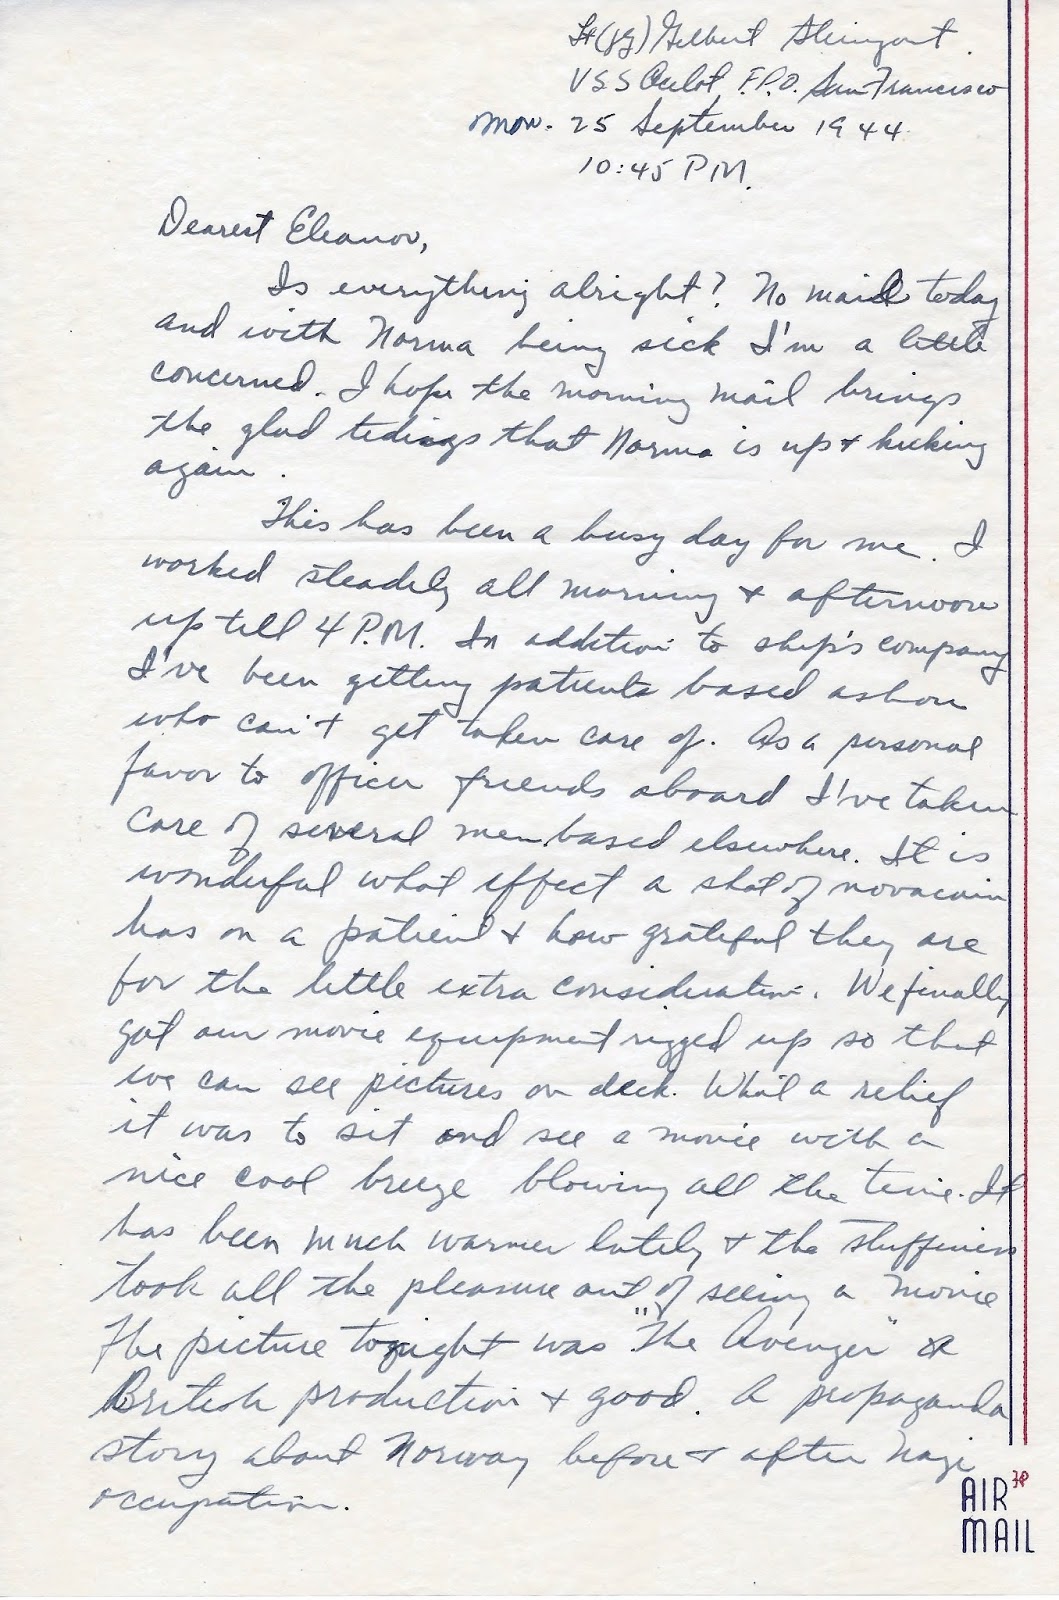 Lt(jg) Gilbert
USS Ocelot F.P.O. San Francisco
Mon. 25 September 1944
10:45 P.M.
Dearest Eleanor,
Is everything alright? No mail today
and with Norma being sick I'm a little
concerned. I hope the morning mail brings
the glad tidings that Norma is up + kicking
again.
This has been a busy day for me. I
worked steadily all morning + afternoon
up till 4 P.M. In addition to ship's company
I've been getting patients based ashore
who can't get taken care of. As a personal
favor to officer friends aboard I've taken
care of several men based elsewhere. It is
wonderful what effect a shot of novacain
has on a patient + how grateful they are
for the little extra consideration. We finally
got our movie equipment rigged up so that
we can see pictures on deck. What a relief
it was to sit and see a movie with a
nice cool breeze blowing all the time. It
has been much warmer lately + the stuffiness
took all the pleasure out of seeing a movie
The picture tonight was "The Avenger" a
British production + good. A propaganda
story about Norway before + after Nazi
occupation.
AIR
MAIL